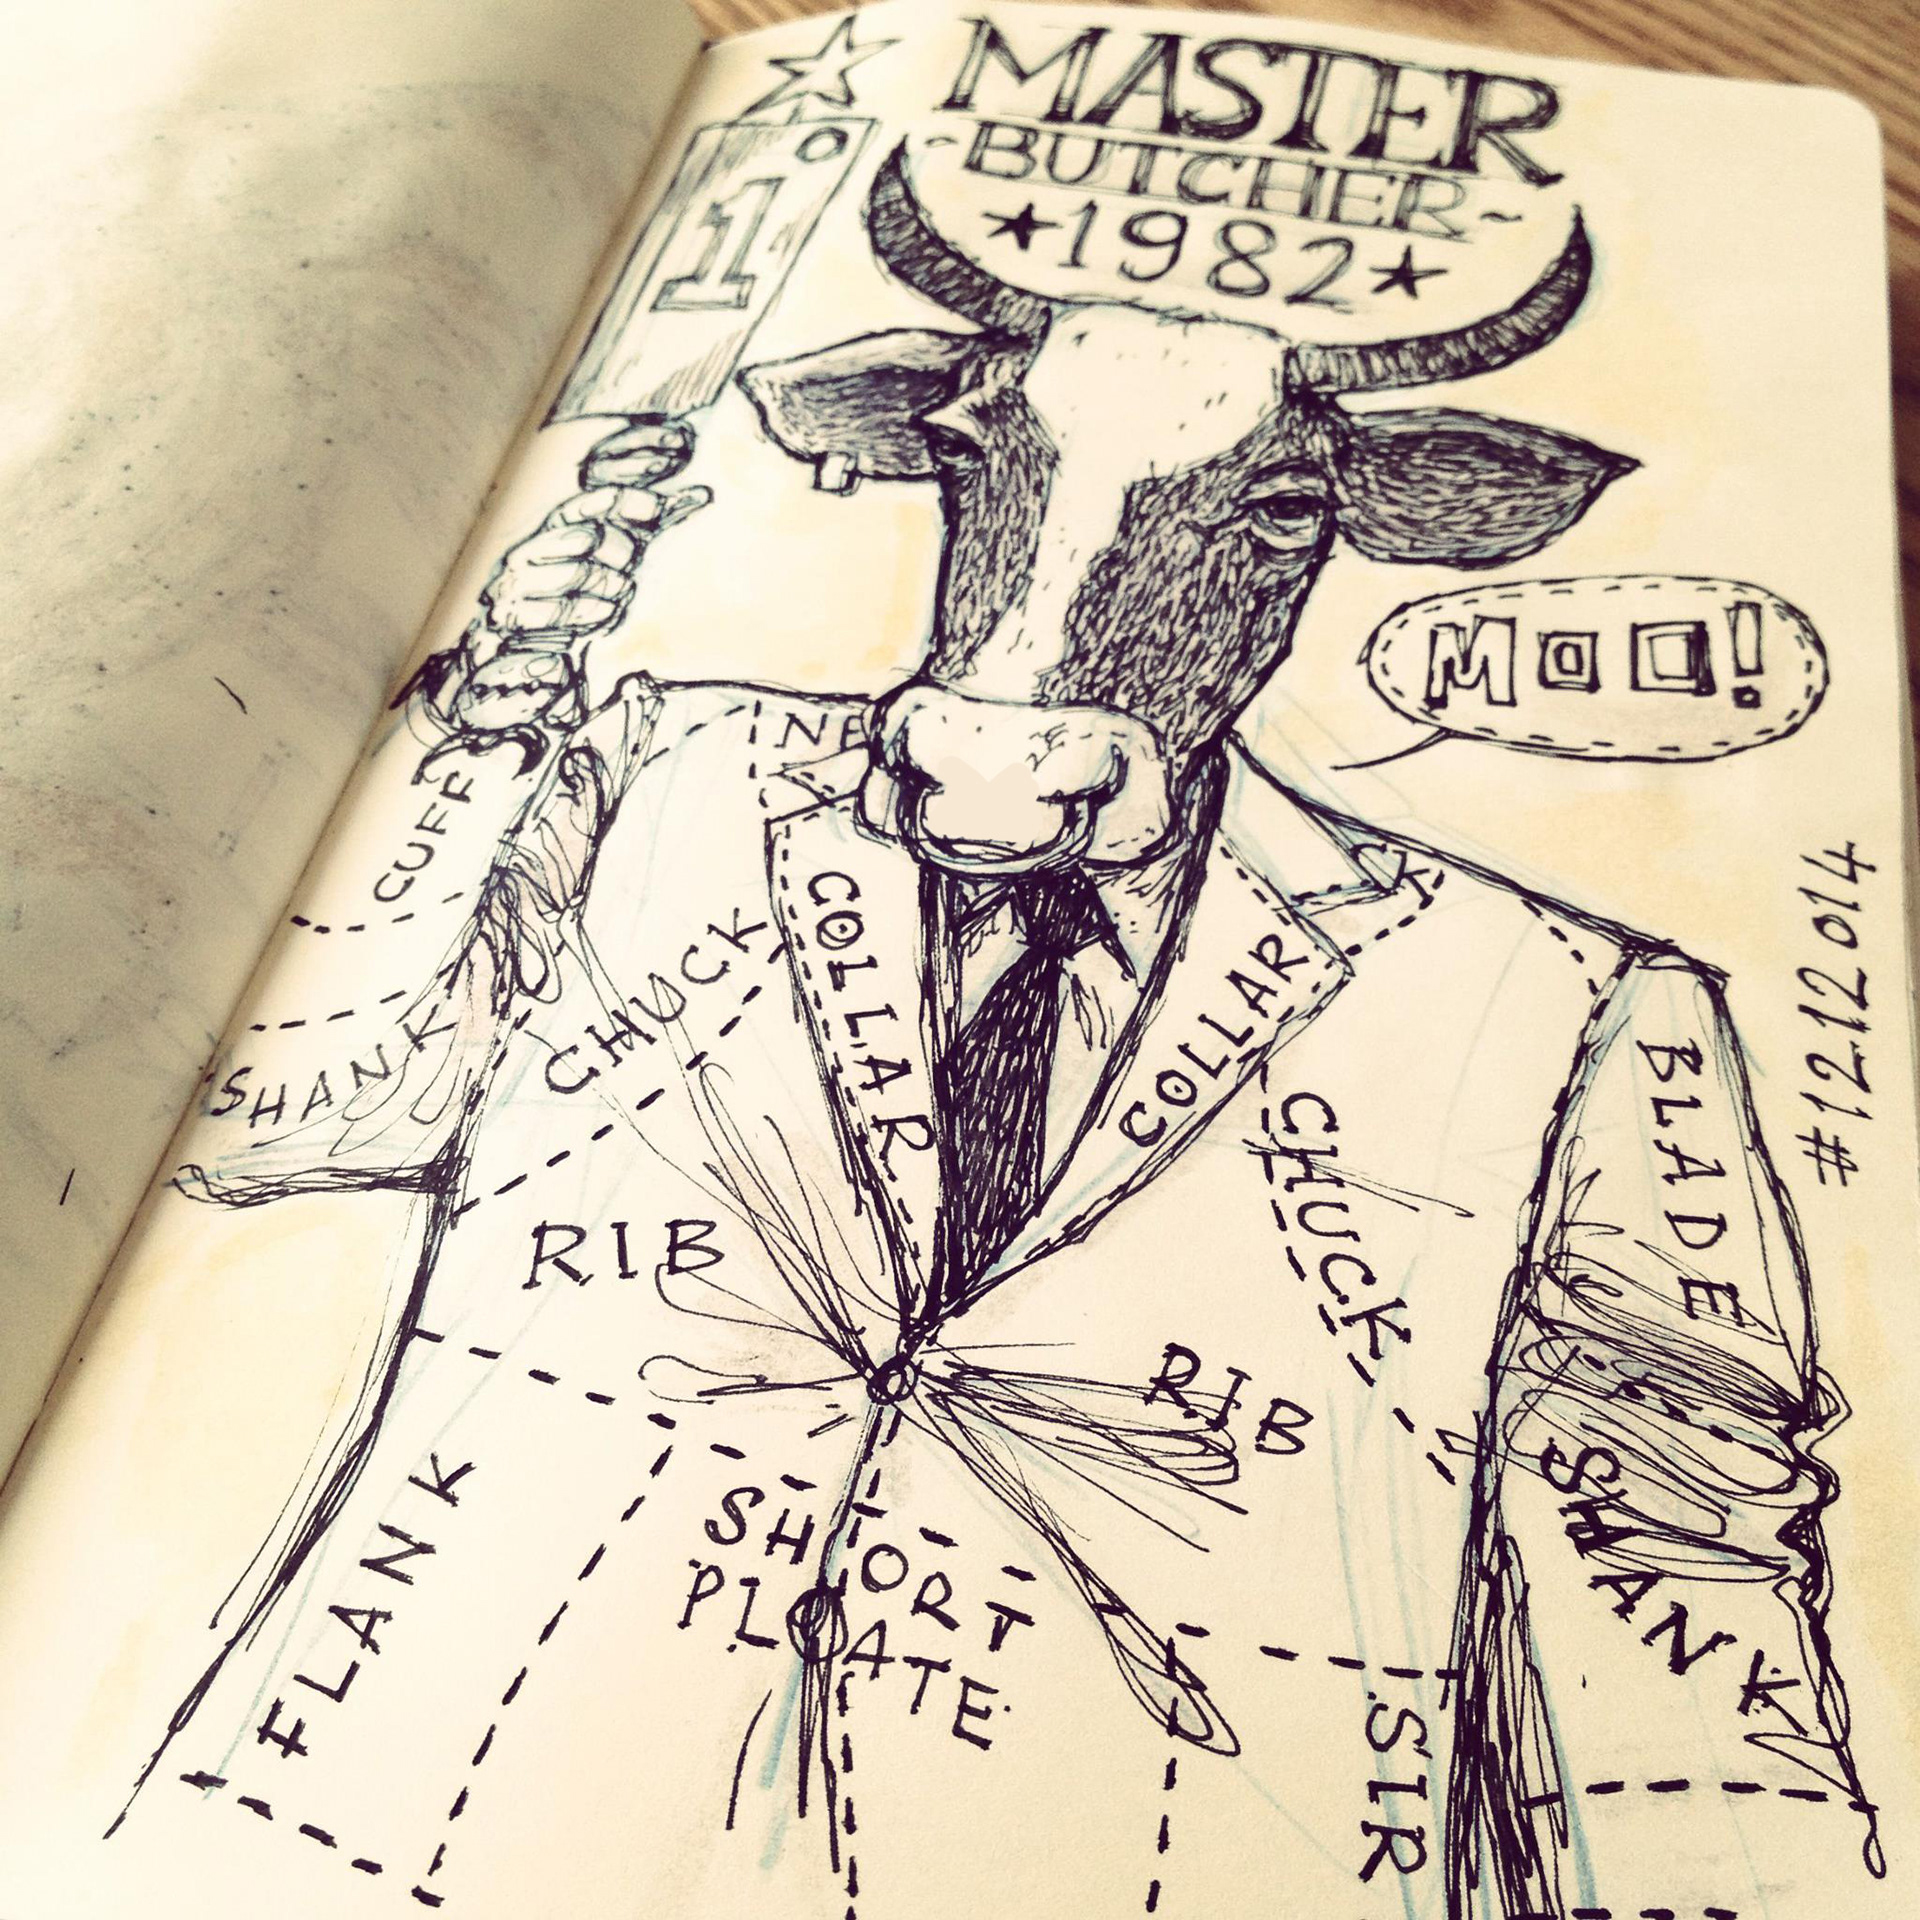 MASTER
~BUTCHER~
★1982★
1
MOO!
CUFF
NE
CK
SHANK
CHUCK
COLLAR
COLLAR
CHUCK
BLADE
#12.12.014
RIB
RIB
SHANK
FLANK
SHORT
PLATE
SIR